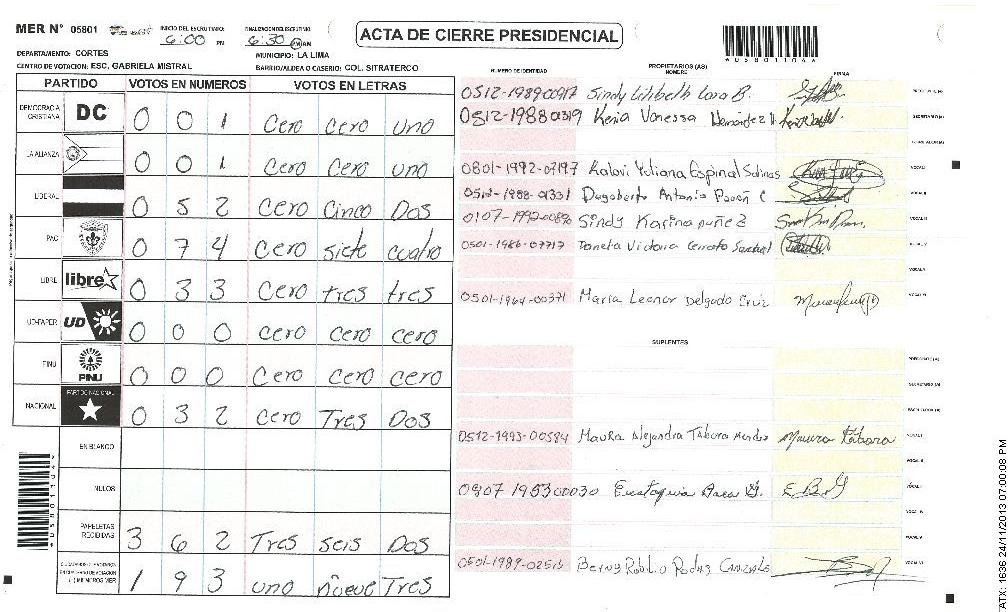 MER N° 05801 INICIO DEL ESCRUTINIO 6:00 PM FINALIZACION DEL ESCRUTINIO 6:30 PM AM
ACTA DE CIERRE PRESIDENCIAL
*058011044*
DEPARTAMENTO: CORTES MUNICIPIO: LA LIMA
CENTRO DE VOTACION: ESC. GABRIELA MISTRAL BARRIO/ALDEA O CASERIO: COL. SITRATERCO
PARTIDO VOTOS EN NUMEROS VOTOS EN LETRAS
DEMOCRACIA CRISTIANA DC 0 0 1 Cero Cero uno
LA ALIANZA 0 0 1 Cero Cero uno
LIBERAL 0 5 2 Cero Cinco Dos
PAC 0 7 4 Cero siete cuatro
LIBRE libre 0 3 3 Cero tres tres
UD-FAPER UD 0 0 0 cero cero cero
PINU PINU 0 0 0 cero cero cero
NACIONAL PARTIDO NACIONAL 0 3 2 cero Tres Dos
EN BLANCO
NULOS
PAPELETAS RECIBIDAS 3 6 2 Tres seis Dos
1 9 3 uno nueve Tres
NUMERO DE IDENTIDAD PROPIETARIOS (AS) NOMBRE FIRMA
0512-1989-00917 Sindy Lihbeth Lara B. PRESIDENTE (A)
0512-1988-01319 Kenia Vanessa Hernández SECRETARIO (A)
ESCRUTADOR (A)
0801-1992-07197 Kalovi Yuliana Espinal Salinas VOCAL I
Dagoberto Antonio Pavón C VOCAL II
0107-1992-00896 Sindy Karina nuñez VOCAL III
0501-1986-07717 Victoria Cerrato VOCAL IV
VOCAL V
0501-1964-00371 Maria Leonor Delgado Cruz VOCAL VI
SUPLENTES
PRESIDENTE (A)
SECRETARIO (A)
ESCRUTADOR (A)
0512-1993-00584 Maura Alejandra Tábora Mendes Maura Tábora VOCAL I
VOCAL II
0907 1953 00030 VOCAL III
VOCAL IV
VOCAL V
0501-1989-02515 VOCAL VI
ATX: 1636 24/11/2013 07:00:08 PM